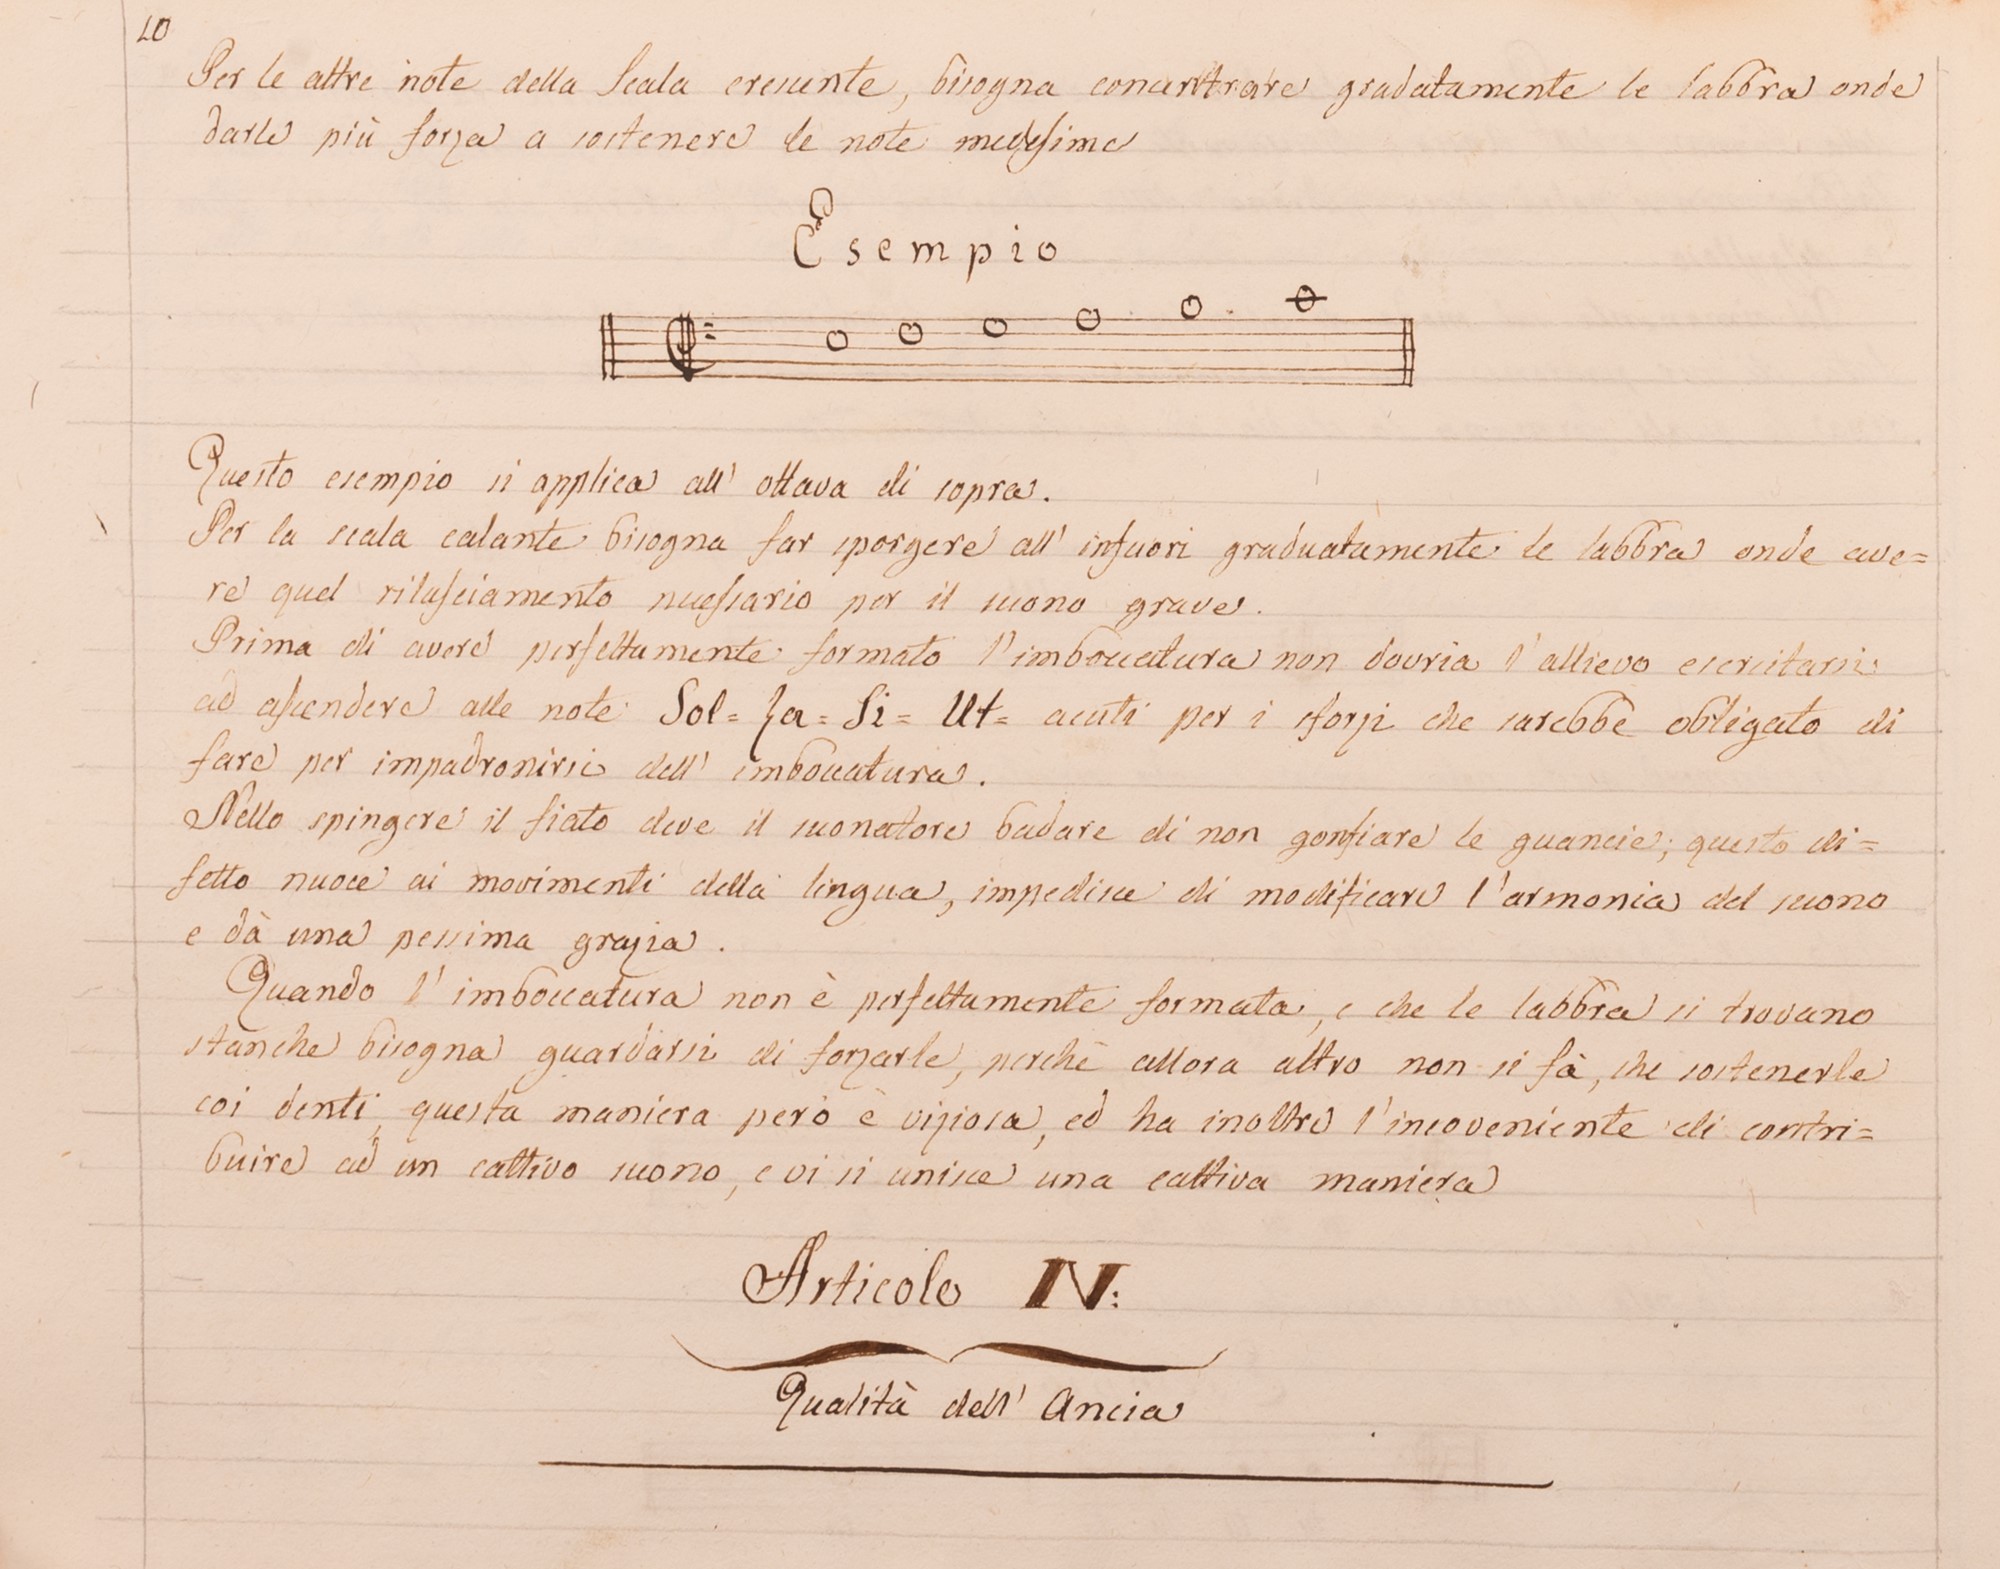 10
Per le altre note della Scala crescente, bisogna concentrare gradatamente le labbra onde
darle più forza a sostenere le note medesime
Esempio
Questo esempio si applica all' ottava di sopra.
Per la scala calante bisogna far sporgere all' infuori graduatamente le labbra onde ave=
re quel rilasciamento necessario per il suono grave.
Prima di avere perfettamente formato l'imboccatura non dovria l'allievo esercitarsi
ad ascendere alle note Sol= La= Si= Ut= acuti per i sforzi che sarebbe obligato di
fare per impadronirsi dell' imboccatura.
Nello spingere il fiato deve il suonatore badare di non gonfiare le guancie; questo di=
fetto nuoce ai movimenti della lingua, impedisce di modificare l'armonia del suono
e dà una pessima grazia.
Quando l' imboccatura non è perfettamente formata, e che le labbra si trovano
stanche bisogna guardarsi di forzarle, perchè allora altro non si fà, che sostenerle
coi denti, questa maniera però è viziosa, ed ha inoltre l'incoveniente di contri=
buire ad un cattivo suono, e vi si unisce una cattiva maniera
Articolo IV:
Qualità dell' Ancia